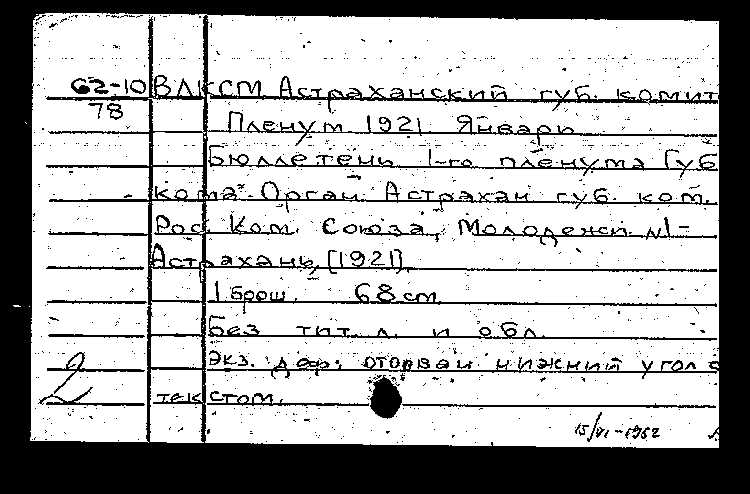 62-10 ВЛКСМ Астраханский губ. комит
78
Пленум 1921 Январь
Бюллетень 1-го пленума Губ
кома. Орган Астрахан губ. ком.
Рос. Ком. Союза, Молодежи №1-
Астрахань, [1921].
1 брош. 68 см
Без тит. л. и обл.
Экз. деф: оторван нижний угол с
2 текстом.
15/VI-1962